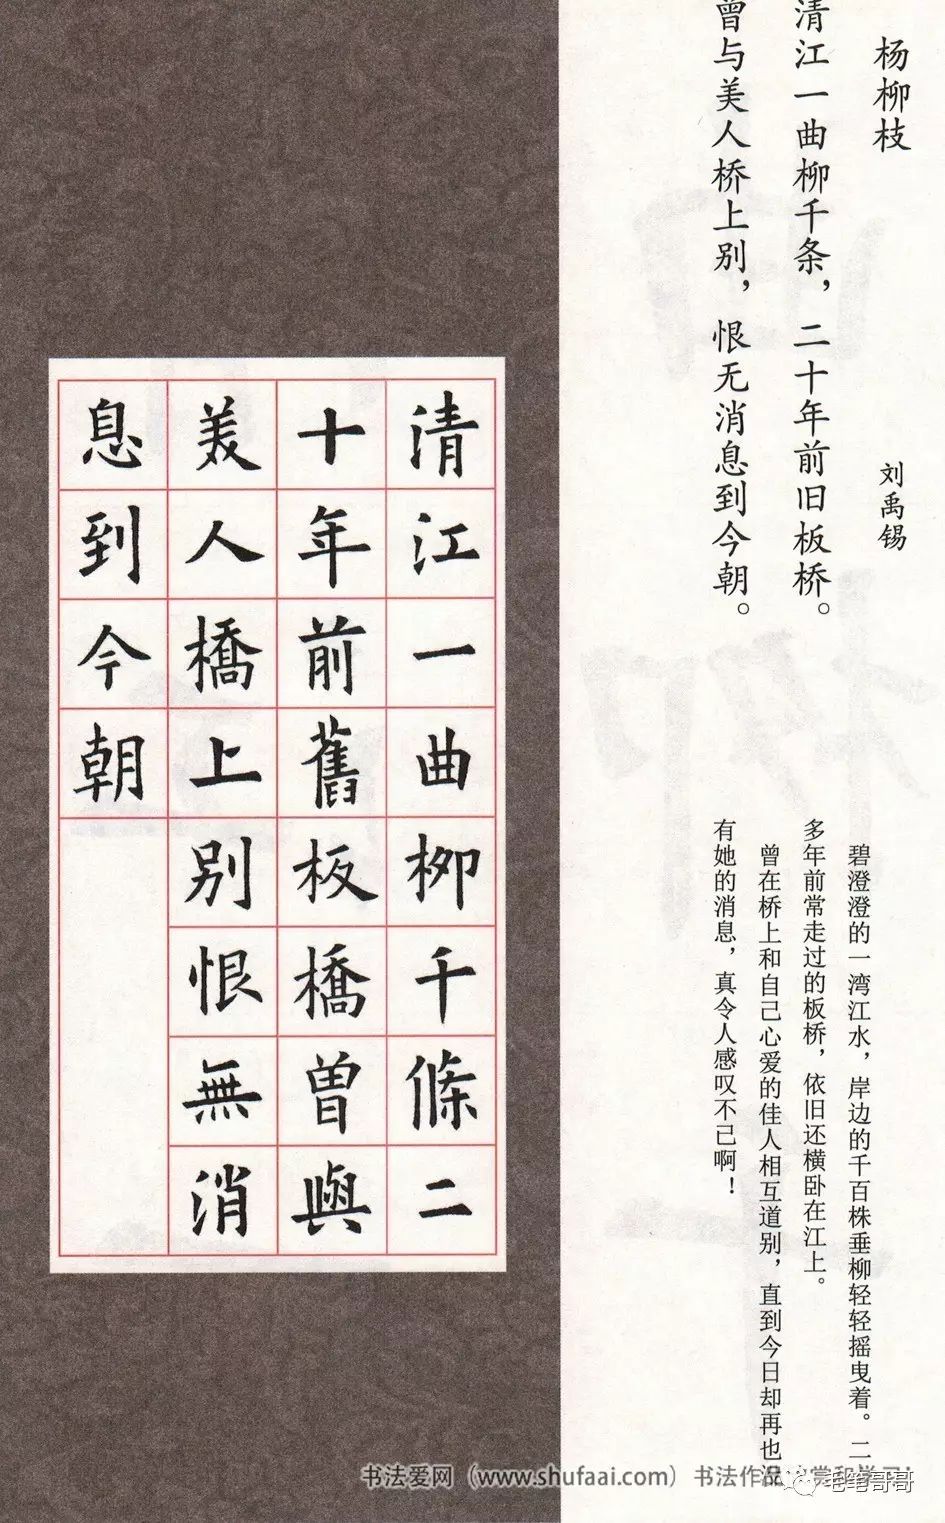 杨柳枝
刘禹锡
清江一曲柳千条，二十年前旧板桥。
曾与美人桥上别，恨无消息到今朝。
碧澄澄的一湾江水，岸边的千百株垂柳轻轻摇曳着。二
多年前常走过的板桥，依旧还横卧在江上。
曾在桥上和自己心爱的佳人相互道别，直到今日却再也没
有她的消息，真令人感叹不已啊！
清江一曲柳千條二
十年前舊板橋曾與
美人橋上別恨無消
息到今朝
书法爱网（www.shufaai.com）书法作品欣赏和学习！
毛笔哥哥